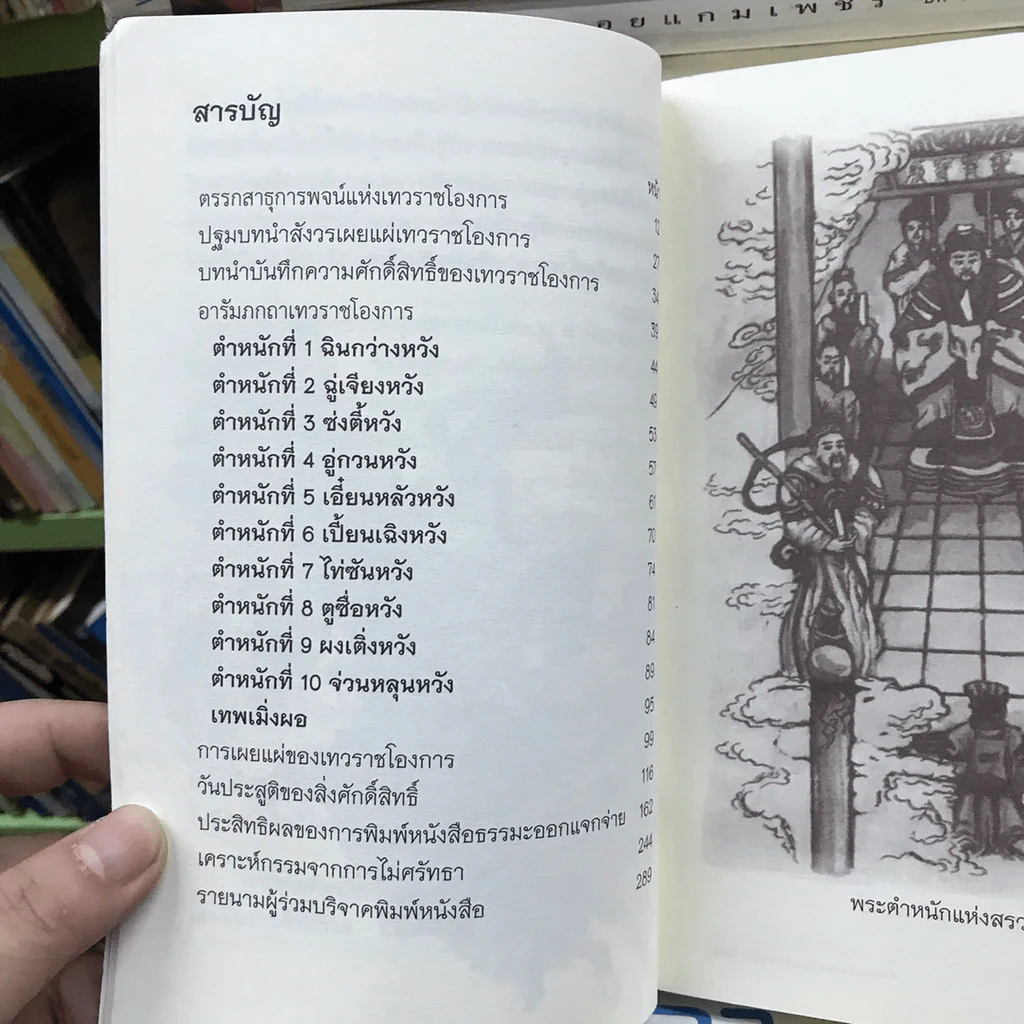 อยแกมเพชร
สารบัญ
หน้า
ตรรกสาธุการพจน์แห่งเทวราชโองการ 12
ปฐมบทนำสังวรเผยแผ่เทวราชโองการ 27
บทนำบันทึกความศักดิ์สิทธิ์ของเทวราชโองการ 34
อารัมภกถาเทวราชโองการ 39
ตำหนักที่ 1 ฉินกว่างหวัง 44
ตำหนักที่ 2 ฉู่เจียงหวัง 49
ตำหนักที่ 3 ซ่งตี้หวัง 53
ตำหนักที่ 4 อู่กวนหวัง 57
ตำหนักที่ 5 เอี๋ยนหลัวหวัง 61
ตำหนักที่ 6 เปี้ยนเฉิงหวัง 70
ตำหนักที่ 7 ไท่ซันหวัง 74
ตำหนักที่ 8 ตูซื่อหวัง 81
ตำหนักที่ 9 ผงเติ่งหวัง 84
ตำหนักที่ 10 จ่วนหลุนหวัง 89
เทพเมิ่งผอ 95
การเผยแผ่ของเทวราชโองการ 99
วันประสูติของสิ่งศักดิ์สิทธิ์ 116
ประสิทธิผลของการพิมพ์หนังสือธรรมะออกแจกจ่าย 162
เคราะห์กรรมจากการไม่ศรัทธา 244
รายนามผู้ร่วมบริจาคพิมพ์หนังสือ 289
พระตำหนักแห่งสรว